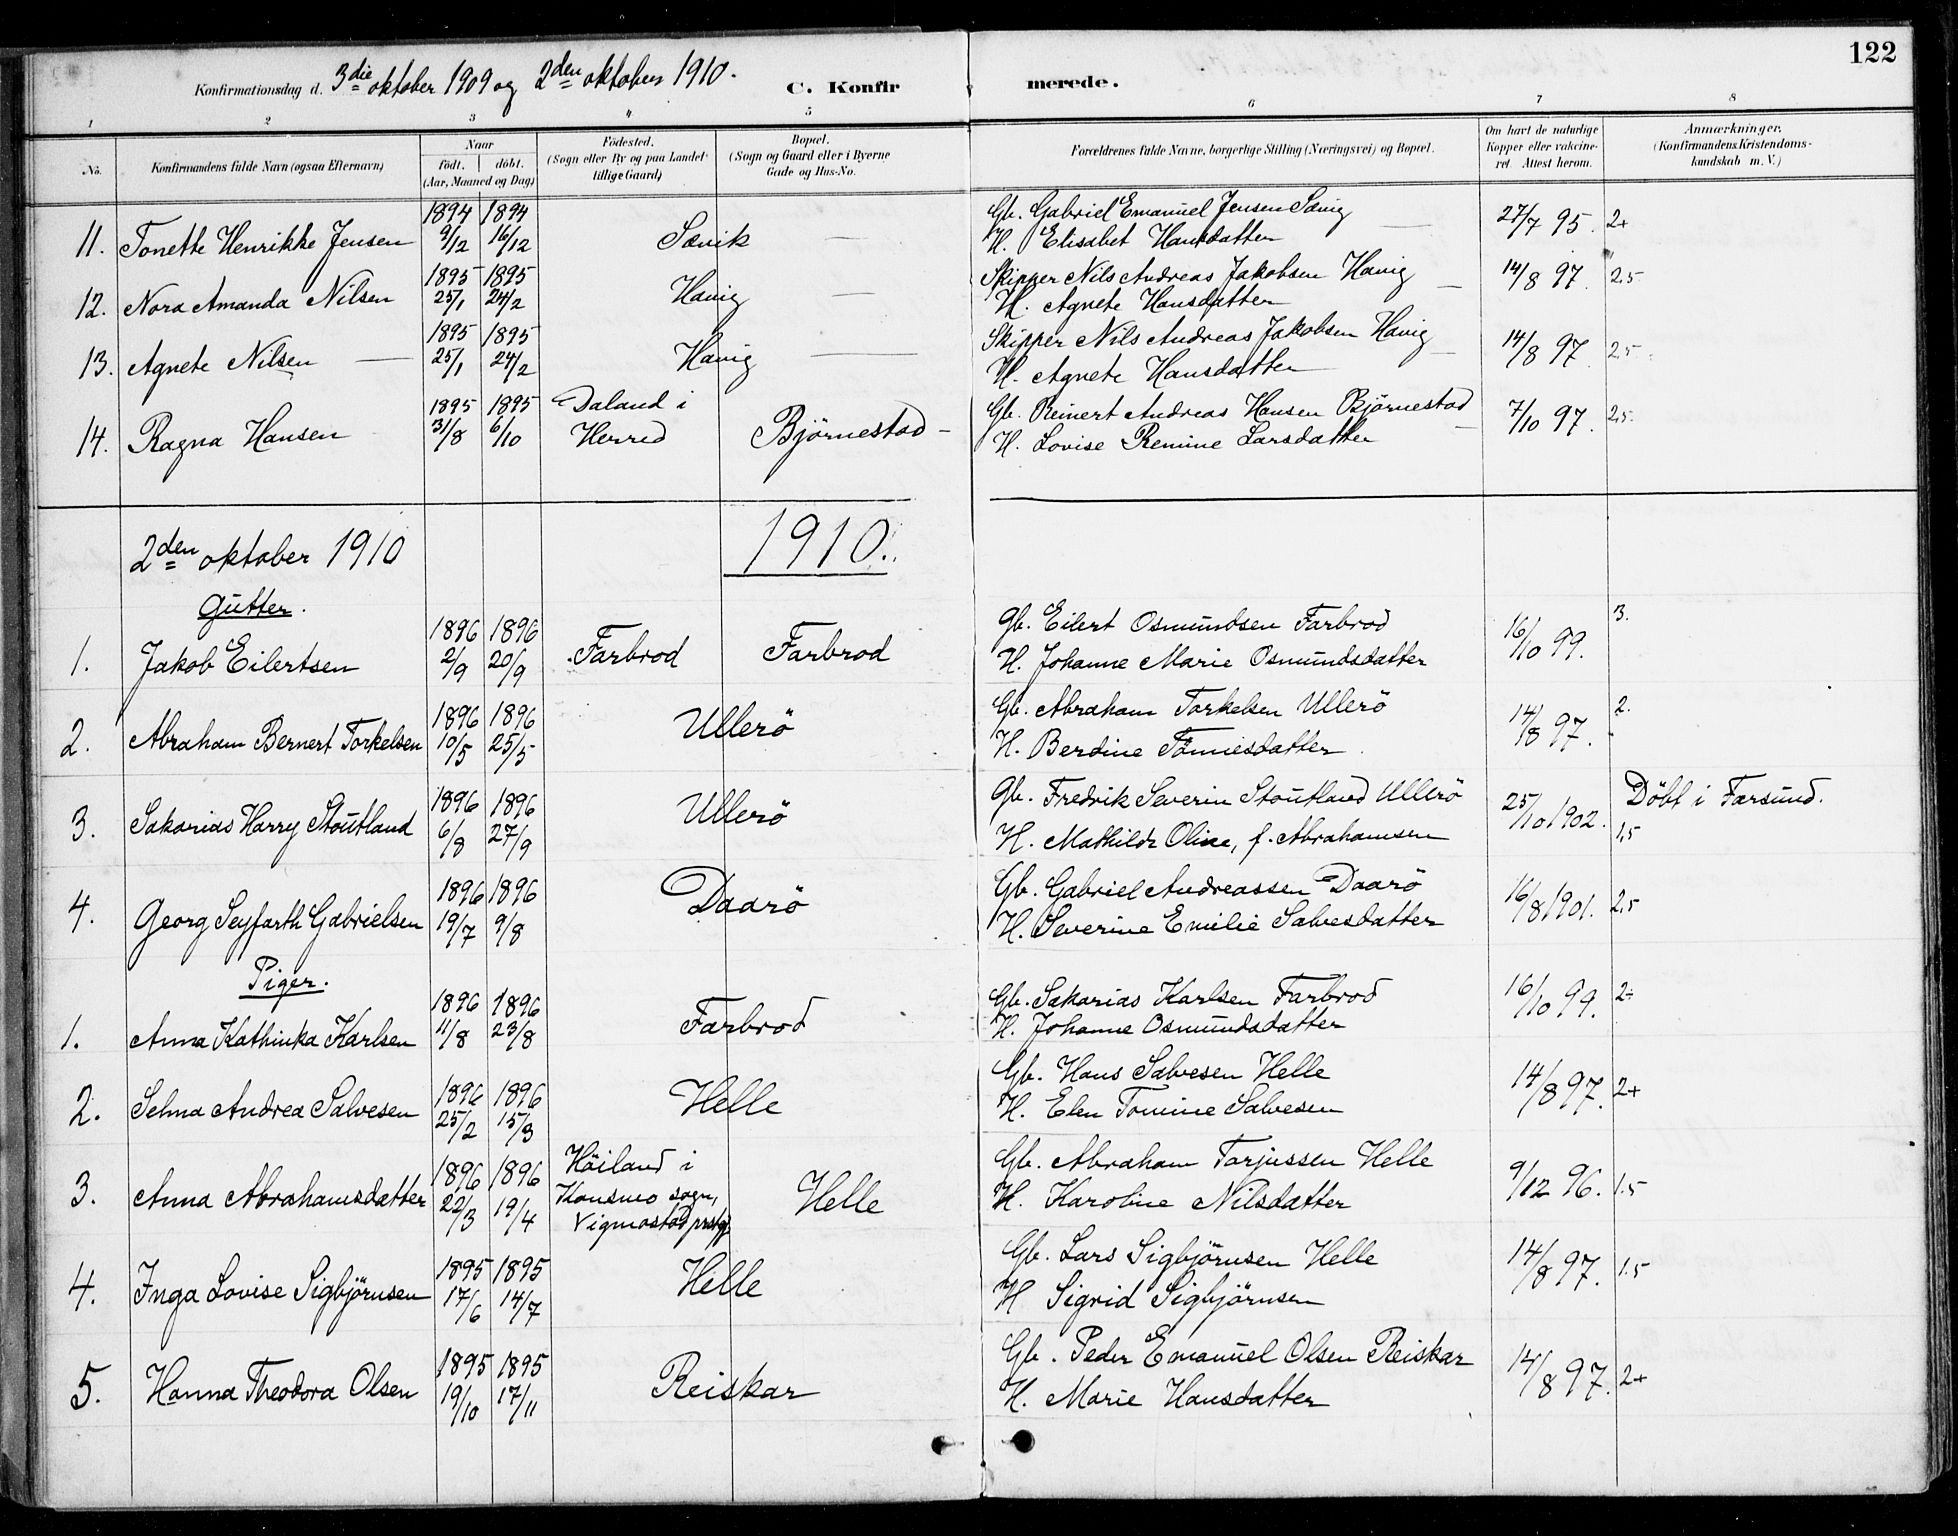 122
Konfirmationsdag d. 3die oktober 1909 og 2den oktober 1910.
C. Konfirmerede.
1 2 3 4 5 6 7 8
No. Konfirmandens fulde Navn (ogsaa Efternavn) Naar födt. döbt. (Aar, Maaned og Dag) Födested. (Sogn eller By og paa Landet tillige Gaard) Bopæl. (Sogn og Gaard eller i Byerne Gade og Hus-No. Forældrenes fulde Navne, borgerlige Stilling (Næringsvei) og Bopæl. Om havt de naturlige Kopper eller vakcineret. Attest herom. Anmærkninger. (Konfirmandens Kristendomskundskab m. V.)
11. Tonette Henrikke Jensen 1894 9/12 1894 16/12 Sævik — Gb. Gabriel Emanuel Jensen Sævig
H. Elisabet Hansdatter 27/7 95. 2+
12. Nora Amanda Nilsen 1895 25/1 1895 24/2 Havig — Skipper Nils Andreas Jakobsen Havig
H. Agnete Hansdatter 14/8 97. 2,5
13. Agnete Nilsen — 1895 25/1 1895 24/2 Havig — Skipper Nils Andreas Jakobsen Havig
H. Agnete Hansdatter 14/8 97. 2,5
14. Ragna Hansen 1895 31/8 1895 6/10 Daland i Herred Björnestad – Gb. Reinert Andreas Hansen Björnestad
H. Lovise Remine Larsdatter 7/10 97. 2,5
2den oktober 1910
1910.
Gutter.
1. Jakob Eilertsen 1896 2/9 1896 20/9 Farbrod Farbrod Gb. Eilert Osmundsen Farbrod
H. Johanne Marie Osmundsdatter 16/10 99. 3.
2. Abraham Bernert Torkelsen 1896 10/5 1896 25/5 Ullerö Gb. Abraham Torkelsen Ullerö
H. Berdine Tönnesdatter 14/8 97. 2.
3. Sakarias Harry Stoutland 1896 6/8 1896 27/9 Ullerö Gb. Fredrik Severin Stoutland Ullerö
H. Mathilde Oline, f. Abrahamsen 25/10 1902. Döbt i Farsund.
1,5
4. Georg Seyfarth Gabrielsen 1896 19/7 1896 9/8 Daarö Gb. Gabriel Andreassen Daarö
H. Severine Emilie Salvesdatter 16/8 1901. 2,5
Piger.
1. Anna Kathinka Karlsen 1896 11/8 1896 23/8 Farbrod Gb. Sakarias Karlsen Farbrod
H. Johanne Osmundsdatter 16/10 99. 2÷
2. Selma Andrea Salvesen 1896 25/2 1896 15/3 Helle Gb. Hans Salvesen Helle
H. Elen Tomine Salvesen 14/8 97. 2+
3. Anna Abrahamsdatter 1896 22/3 1896 19/4 Höiland i Konsmo sogn, Vigmostad prstgj. Helle Gb. Abraham Torjussen Helle
H. Karoline Nilsdatter 9/12 96. 1.5
4. Inga Lovise Sigbjörnsen 1895 17/6 1895 14/7 Helle Gb. Lars Sigbjörnsen Helle
H Sigrid Sigbjörnsen 14/8 97. 1.5
5. Hanna Theodora Olsen 1895 19/10 1895 17/11 Reiskar Gb. Peder Emanuel Olsen Reiskar
H. Marie Hansdatter 14/8 97. 2+